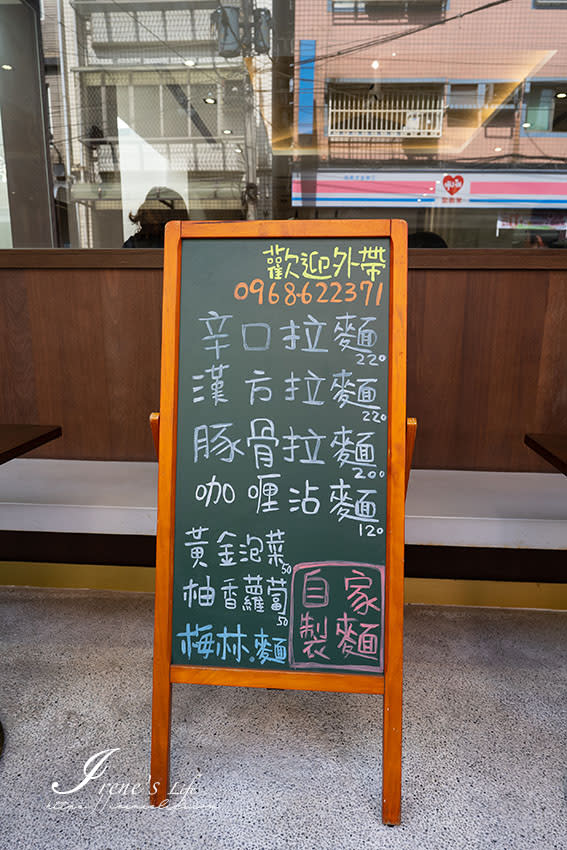 歡迎外帶
0968-622371
辛口拉麵 220
漢方拉麵 220
豚骨拉麵 200
咖哩沾麵 120
黃金泡菜 50
柚香蘿蔔 50
梅林.麵
自家
製麵
Irene's Life